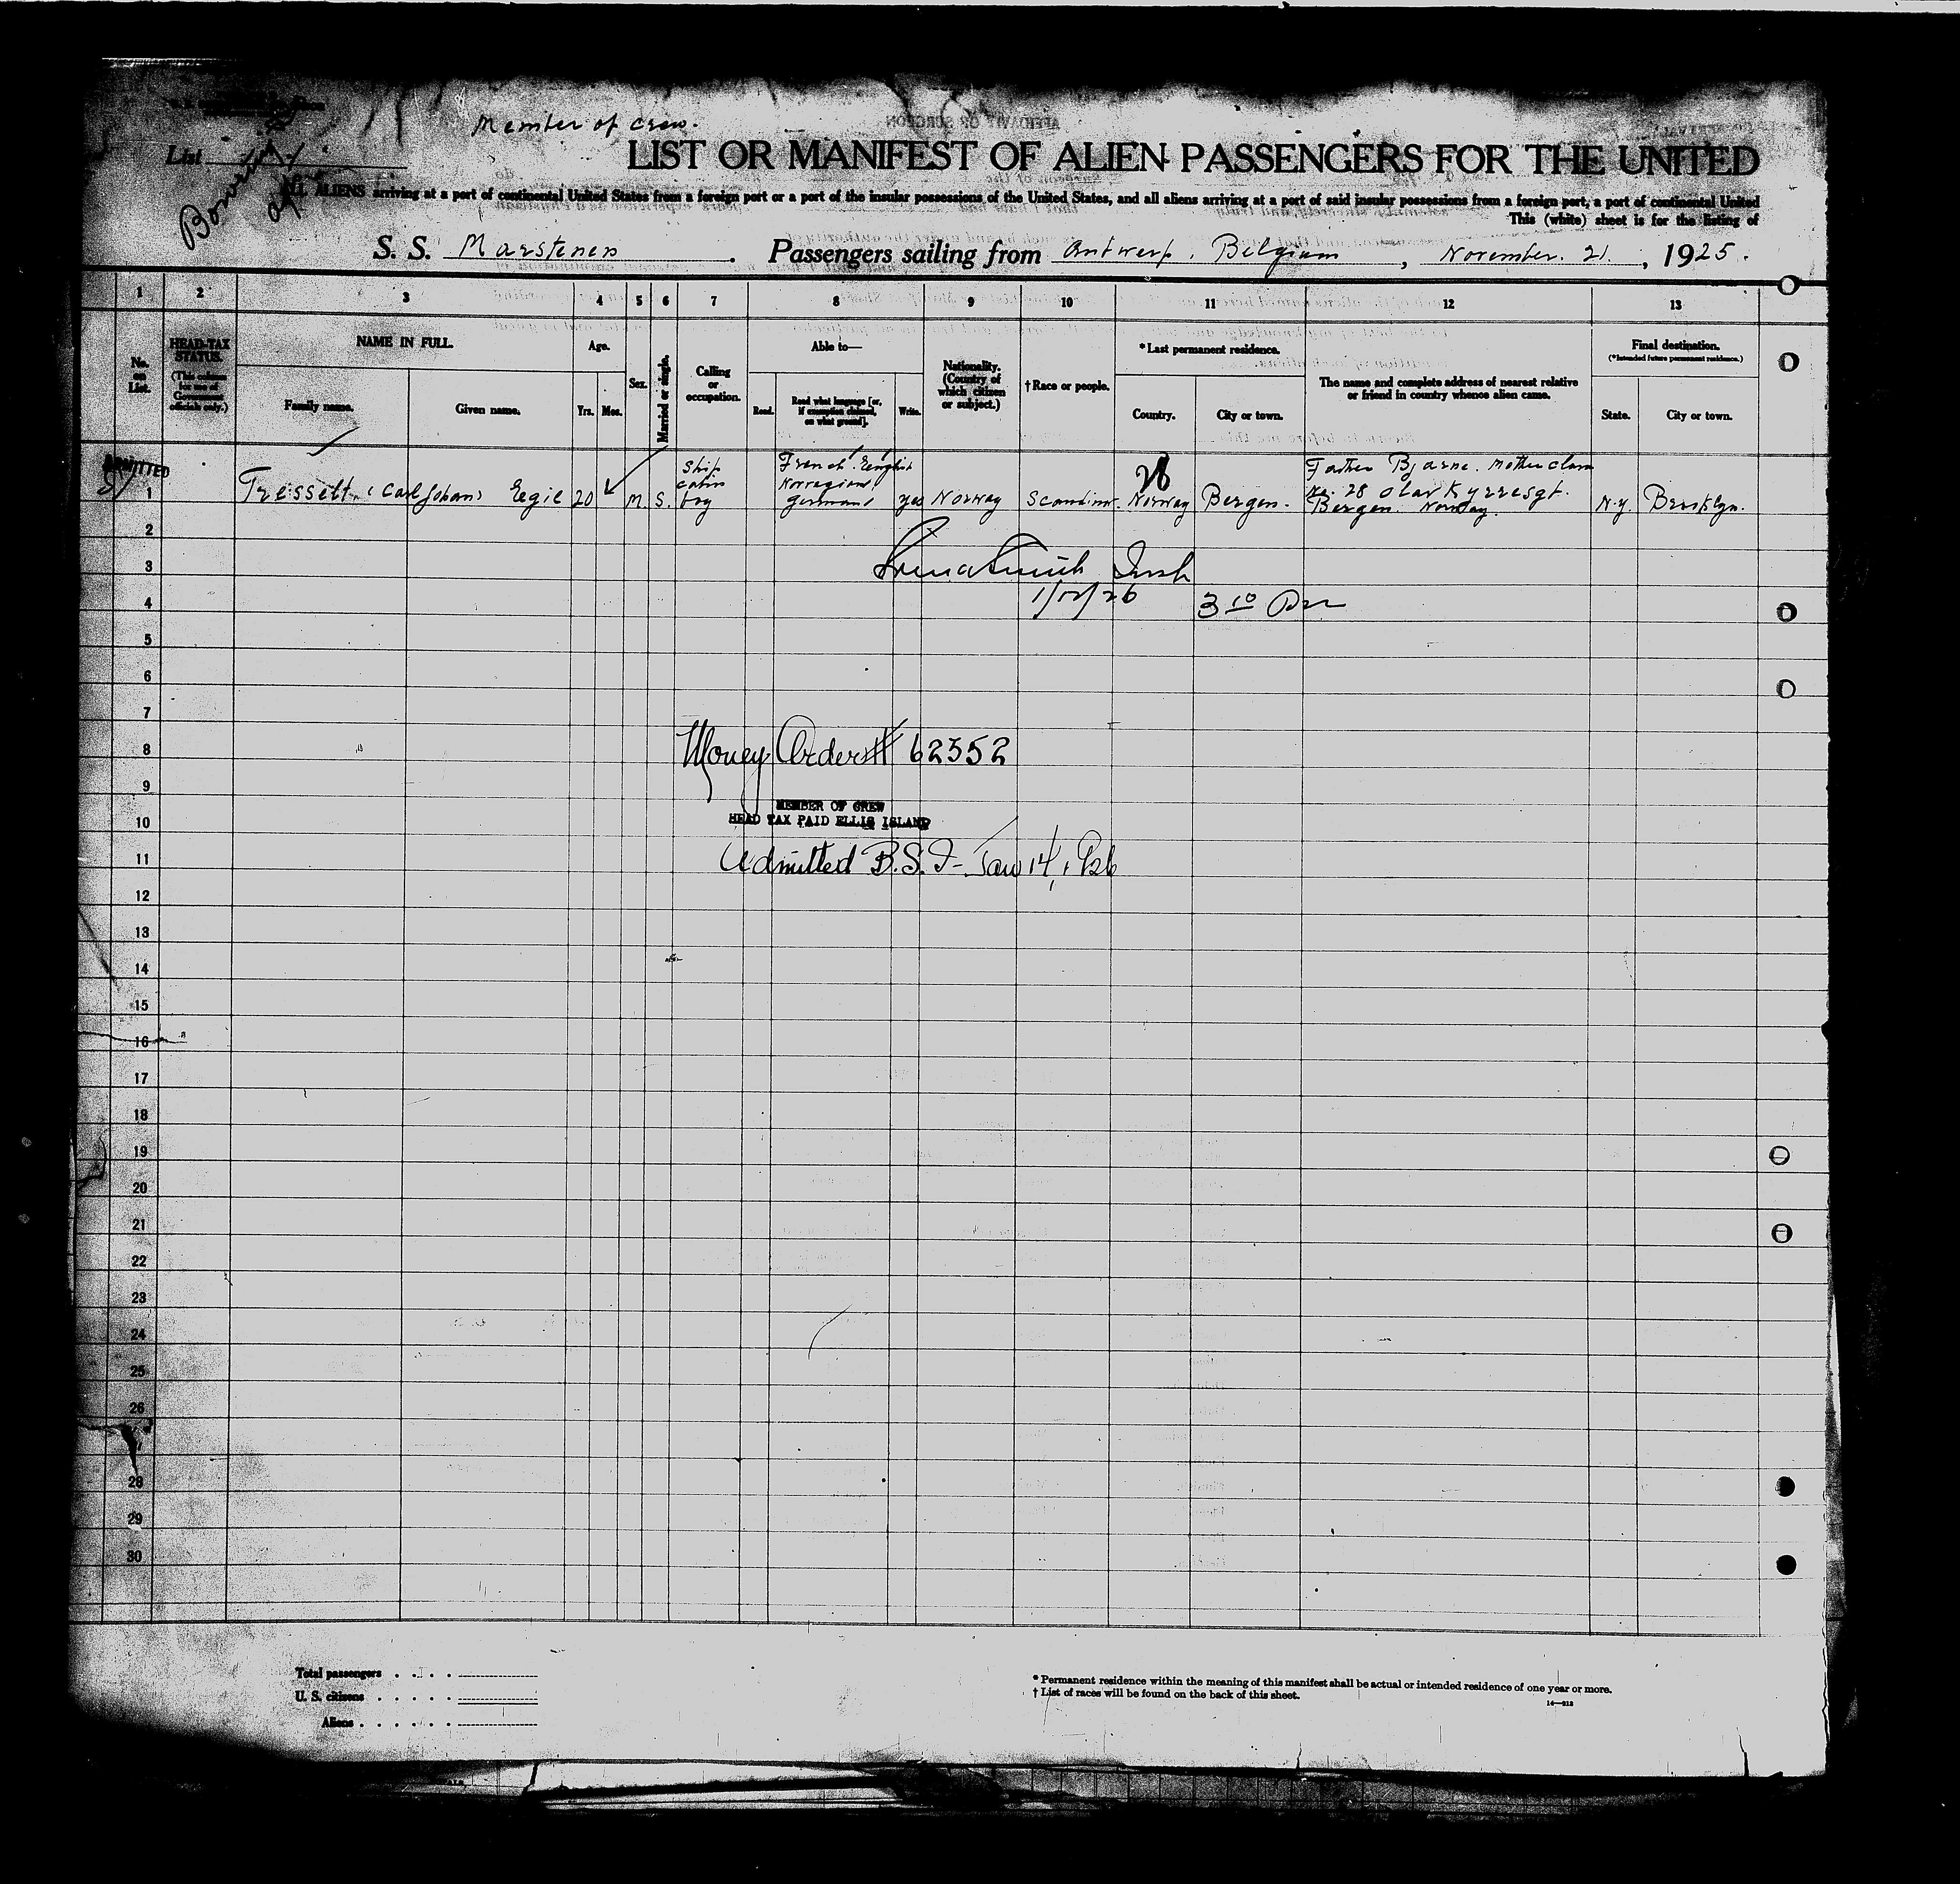 Member of crew.
List
LIST OR MANIFEST OF ALIEN PASSENGERS FOR THE UNITED
ALL ALIENS arriving at a port of continental United States from a foreign port or a port of the insular possessions of the United States, and all aliens arriving at a port of said insular possessions from a foreign port, a port of continental United
This (white) sheet is for the listing of
S. S. Marstenen . Passengers sailing from Antwerp, Belgium , November. 21. , 1925.
1 2 3 4 5 6 7 8 9 10 11 12 13
No. on List.
HEAD-TAX STATUS.
(This column for use of Government officials only.)
NAME IN FULL.
Family name.
Given name.
Age.
Yrs. Mos.
Sex.
Married or single.
Calling or occupation.
Able to—
Read.
Read what language [or, if exemption claimed, on what ground].
Write.
Nationality. (Country of which citizen or subject.)
†Race or people.
*Last permanent residence.
Country.
City or town.
The name and complete address of nearest relative or friend in country whence alien came.
Final destination.
(*Intended future permanent residence.)
State.
City or town.
ADMITTED
1 Tresselt (Carl Johan) Egil 20 M. S. ship cabin boy French English Norwegian German yes Norway Scandinav. 28 Norway Bergen. Father Bjarne. Mother Clara No. 28 Olav Kyrresgt. Bergen. Norway. N.Y. Brooklyn.
2
3
4 1/12/26 3 10
5
6
7
8 Money Order # 62352
9
MEMBER OF CREW
10 HEAD TAX PAID ELLIS ISLAND
11 Admitted B.S.I - Jan 14, 1926
12
13
14
15
16
17
18
19
20
21
22
23
24
25
26
28
29
30
Total passengers
U. S. citizens
Aliens
* Permanent residence within the meaning of this manifest shall be actual or intended residence of one year or more.
† List of races will be found on the back of this sheet.
14—213